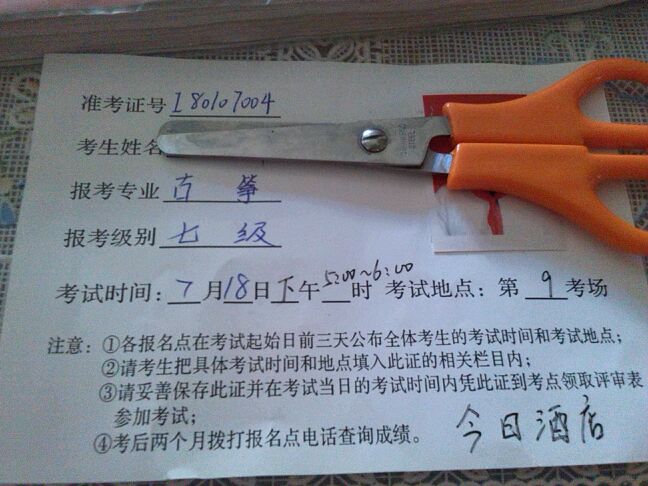 准考证号 I80107004
考生姓名
报考专业 古 筝
报考级别 七 级
考试时间：7月18日下午5:00~6:00时 考试地点：第 9 考场
注意：①各报名点在考试起始日前三天公布全体考生的考试时间和考试地点；
②请考生把具体考试时间和地点填入此证的相关栏目内；
③请妥善保存此证并在考试当日的考试时间内凭此证到考点领取评审表
参加考试；
④考后两个月拨打报名点电话查询成绩。
今日酒店